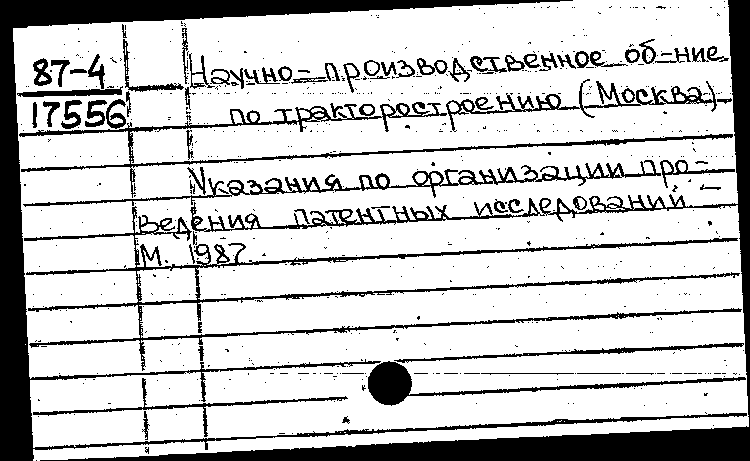 87-4
17556
Научно-производственное об-ние
по тракторостроению (Москва)
Указания по организации про-
ведения патентных исследований -
М., 1987